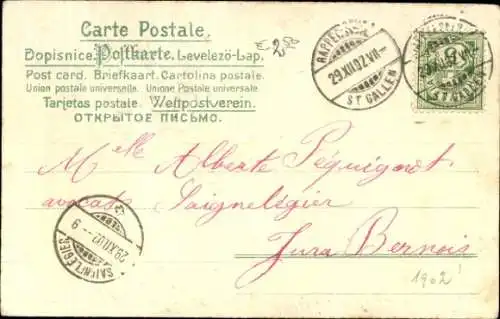 Carte Postale.
Dopisnice. Postkarte. Levelező-Lap.
Post card. Briefkaart. Cartolina postale.
Union postale universelle. Unione Postale universale.
Tarjetas postale. Weltpostverein.
ОТКРЫТОЕ ПИСЬМО.
€ 28
29.XII.02.VII-
ST GALLEN
5
ST GALLEN
Mlle Alberte Péquignot
avocats Saignelégier
Jura Bernois
SAIGNELÉGIER
29.XII.02.-9
1902